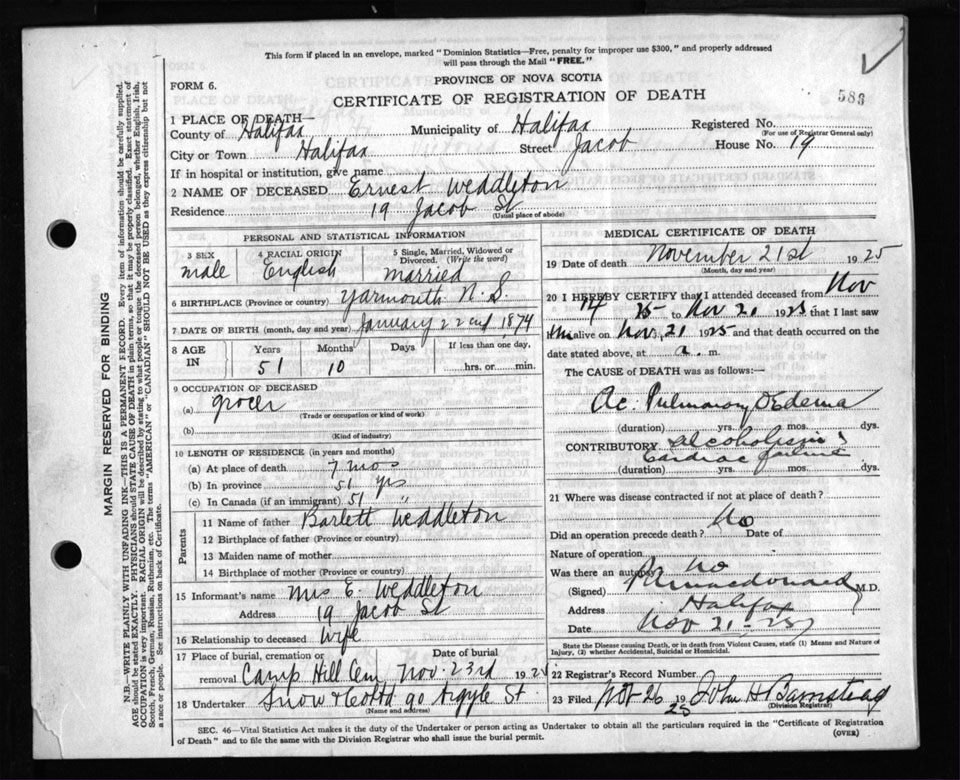 This form if placed in an envelope, marked "Dominion Statistics—Free, penalty for improper use $300," and properly addressed
will pass through the Mail "FREE."
FORM 6.
PROVINCE OF NOVA SCOTIA
CERTIFICATE OF REGISTRATION OF DEATH
583
1 PLACE OF DEATH—
County of Halifax Municipality of Halifax Registered No.
(For use of Registrar General only)
City or Town Halifax Street Jacob House No. 19
If in hospital or institution, give name
2 NAME OF DECEASED Ernest Weddleton
Residence 19 Jacob St
(Usual place of abode)
PERSONAL AND STATISTICAL INFORMATION
3 SEX 4 RACIAL ORIGIN 5 Single, Married, Widowed or
Divorced. (Write the word)
male English married
6 BIRTHPLACE (Province or country) Yarmouth N.S.
7 DATE OF BIRTH (month, day and year) January 22nd 1874
8 AGE IN Years Months Days If less than one day,
51 10 hrs. or min.
9 OCCUPATION OF DECEASED
(a) grocer
(Trade or occupation or kind of work)
(b)
(Kind of industry)
10 LENGTH OF RESIDENCE (in years and months)
(a) At place of death 7 mos
(b) In province 51 yrs
(c) In Canada (if an immigrant) 51 "
Parents
11 Name of father Barlett Weddleton
12 Birthplace of father (Province or country)
13 Maiden name of mother
14 Birthplace of mother (Province or country)
15 Informant's name Mrs E. Weddleton
Address 19 Jacob St
16 Relationship to deceased Wife
17 Place of burial, cremation or Date of burial
removal Camp Hill Cem Nov. 23rd 192
18 Undertaker Snow & Co Ltd 90 Argyle St.
(Name and address)
MEDICAL CERTIFICATE OF DEATH
19 Date of death November 21st 1925
(Month, day and year)
20 I HEREBY CERTIFY that I attended deceased from Nov
14 25 to Nov 21 1925 that I last saw
him alive on Nov. 21 1925 and that death occurred on the
date stated above, at a. m.
The CAUSE OF DEATH was as follows:—
Ac. Pulmonary Oedema
(duration) yrs. mos. dys.
CONTRIBUTORY alcoholism &
Cardiac failure
(duration) yrs. mos. dys.
21 Where was disease contracted if not at place of death?
Did an operation precede death? No Date of
Nature of operation
Was there an autopsy? No
(Signed) Macdonald M.D.
Address Halifax
Date Nov 21 - 25
State the Disease causing Death, or in death from Violent Causes, state (1) Means and Nature of
Injury, (2) whether Accidental, Suicidal or Homicidal.
22 Registrar's Record Number
23 Filed Nov 26 1925 John H Barnstead
(Division Registrar)
SEC. 46—Vital Statistics Act makes it the duty of the Undertaker or person acting as Undertaker to obtain all the particulars required in the "Certificate of Registration
of Death" and to file the same with the Division Registrar who shall issue the burial permit.
(OVER)
MARGIN RESERVED FOR BINDING
N.B.—WRITE PLAINLY WITH UNFADING INK—THIS IS A PERMANENT RECORD. Every item of information should be carefully supplied.
AGE should be stated EXACTLY. PHYSICIANS should STATE CAUSE OF DEATH in plain terms, so that it may be properly classified. Exact statement of
OCCUPATION is very important. RACIAL ORIGIN will be described by stating to what people or tongue the deceased person belonged, whether English, Irish,
Scotch, French, German, Russian, Ruthenian, etc. The terms "AMERICAN" or "CANADIAN" SHOULD NOT BE USED as they express citizenship but not
a race or people. See instructions on back of Certificate.